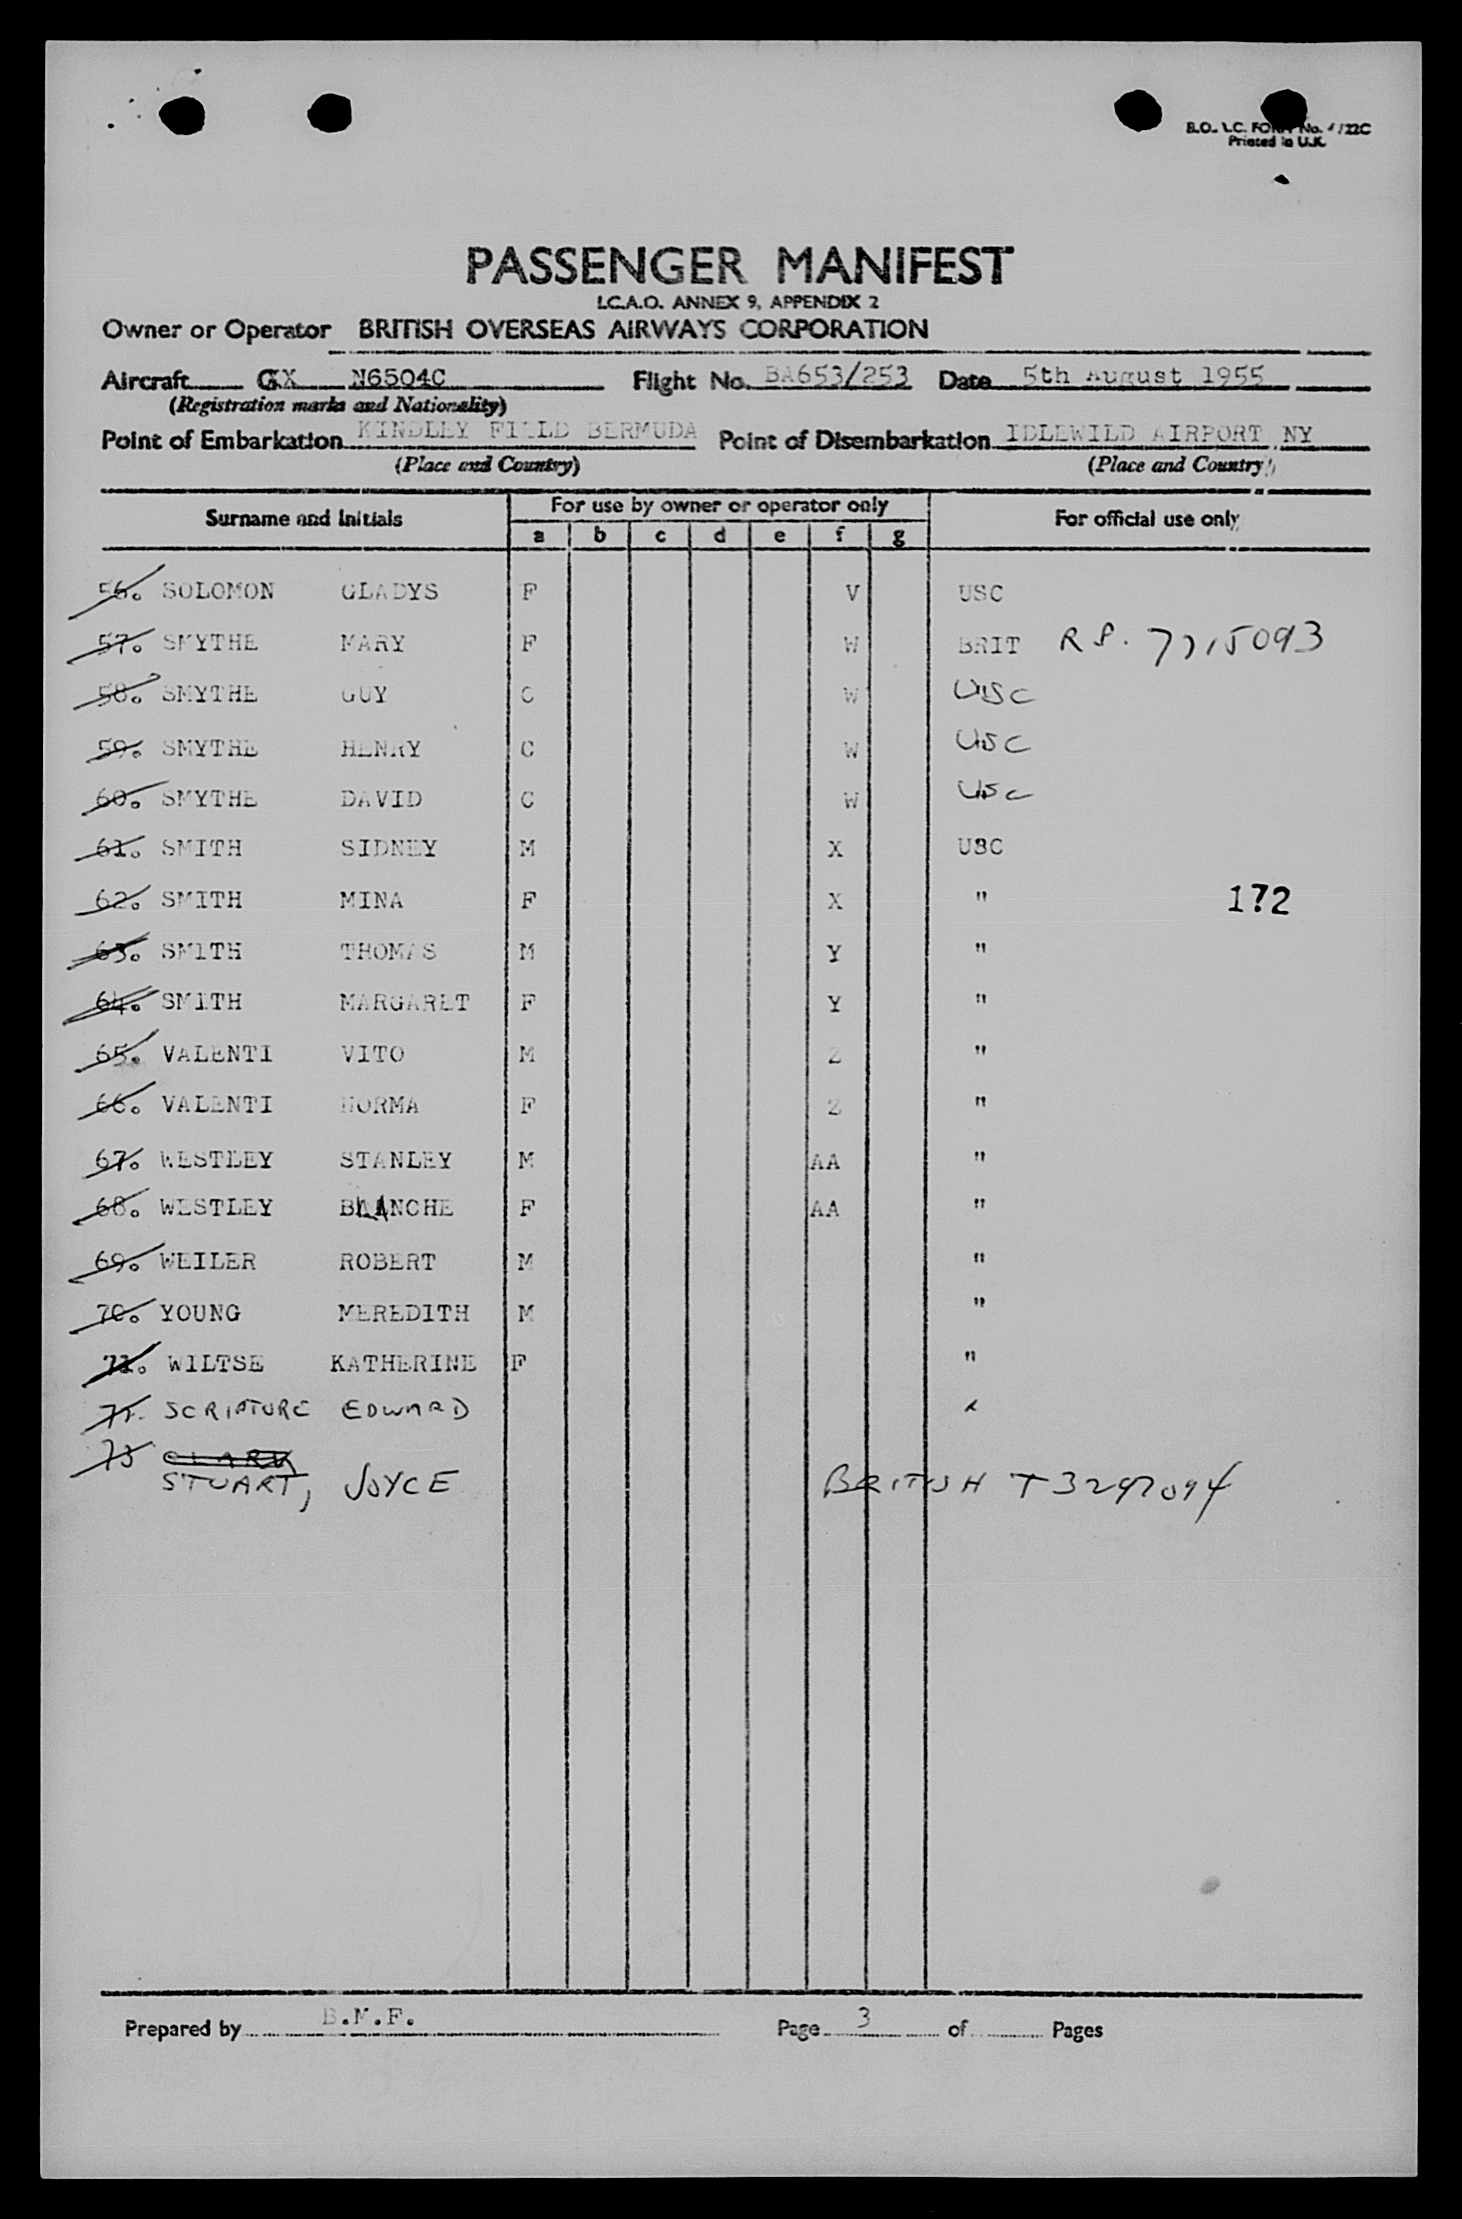 B.O.A.C. FORM No. 4/22C
Printed in U.K.
PASSENGER MANIFEST
I.C.A.O. ANNEX 9, APPENDIX 2
Owner or Operator BRITISH OVERSEAS AIRWAYS CORPORATION
Aircraft GXX N6504C Flight No. BA653/253 Date 5th August 1955
(Registration marks and Nationality)
Point of Embarkation KINDLEY FIELD BERMUDA Point of Disembarkation IDLEWILD AIRPORT NY
(Place and Country) (Place and Country)
Surname and Initials For use by owner or operator only For official use only
a b c d e f g
56. SOLOMON GLADYS F V USC
57. SMYTHE MARY F W BRIT
58. SMYTHE GUY C W USC
59. SMYTHE HENRY C W USC
60. SMYTHE DAVID C W USC
61. SMITH SIDNEY M X USC
62. SMITH MINA F X " 172
63. SMITH THOMAS M Y "
64. SMITH MARGARET F Y "
65. VALENTI VITO M Z "
66. VALENTI NORMA F Z "
67. WESTLEY STANLEY M AA "
68. WESTLEY BLANCHE F AA "
69. WEILER ROBERT M "
70. YOUNG MEREDITH M "
71. WILTSE KATHERINE F "
SCRIPTURE EDWARD
73 CLARK
STUART, JOYCE BRITISH T3297094
Prepared by B.M.F. Page 3 of Pages